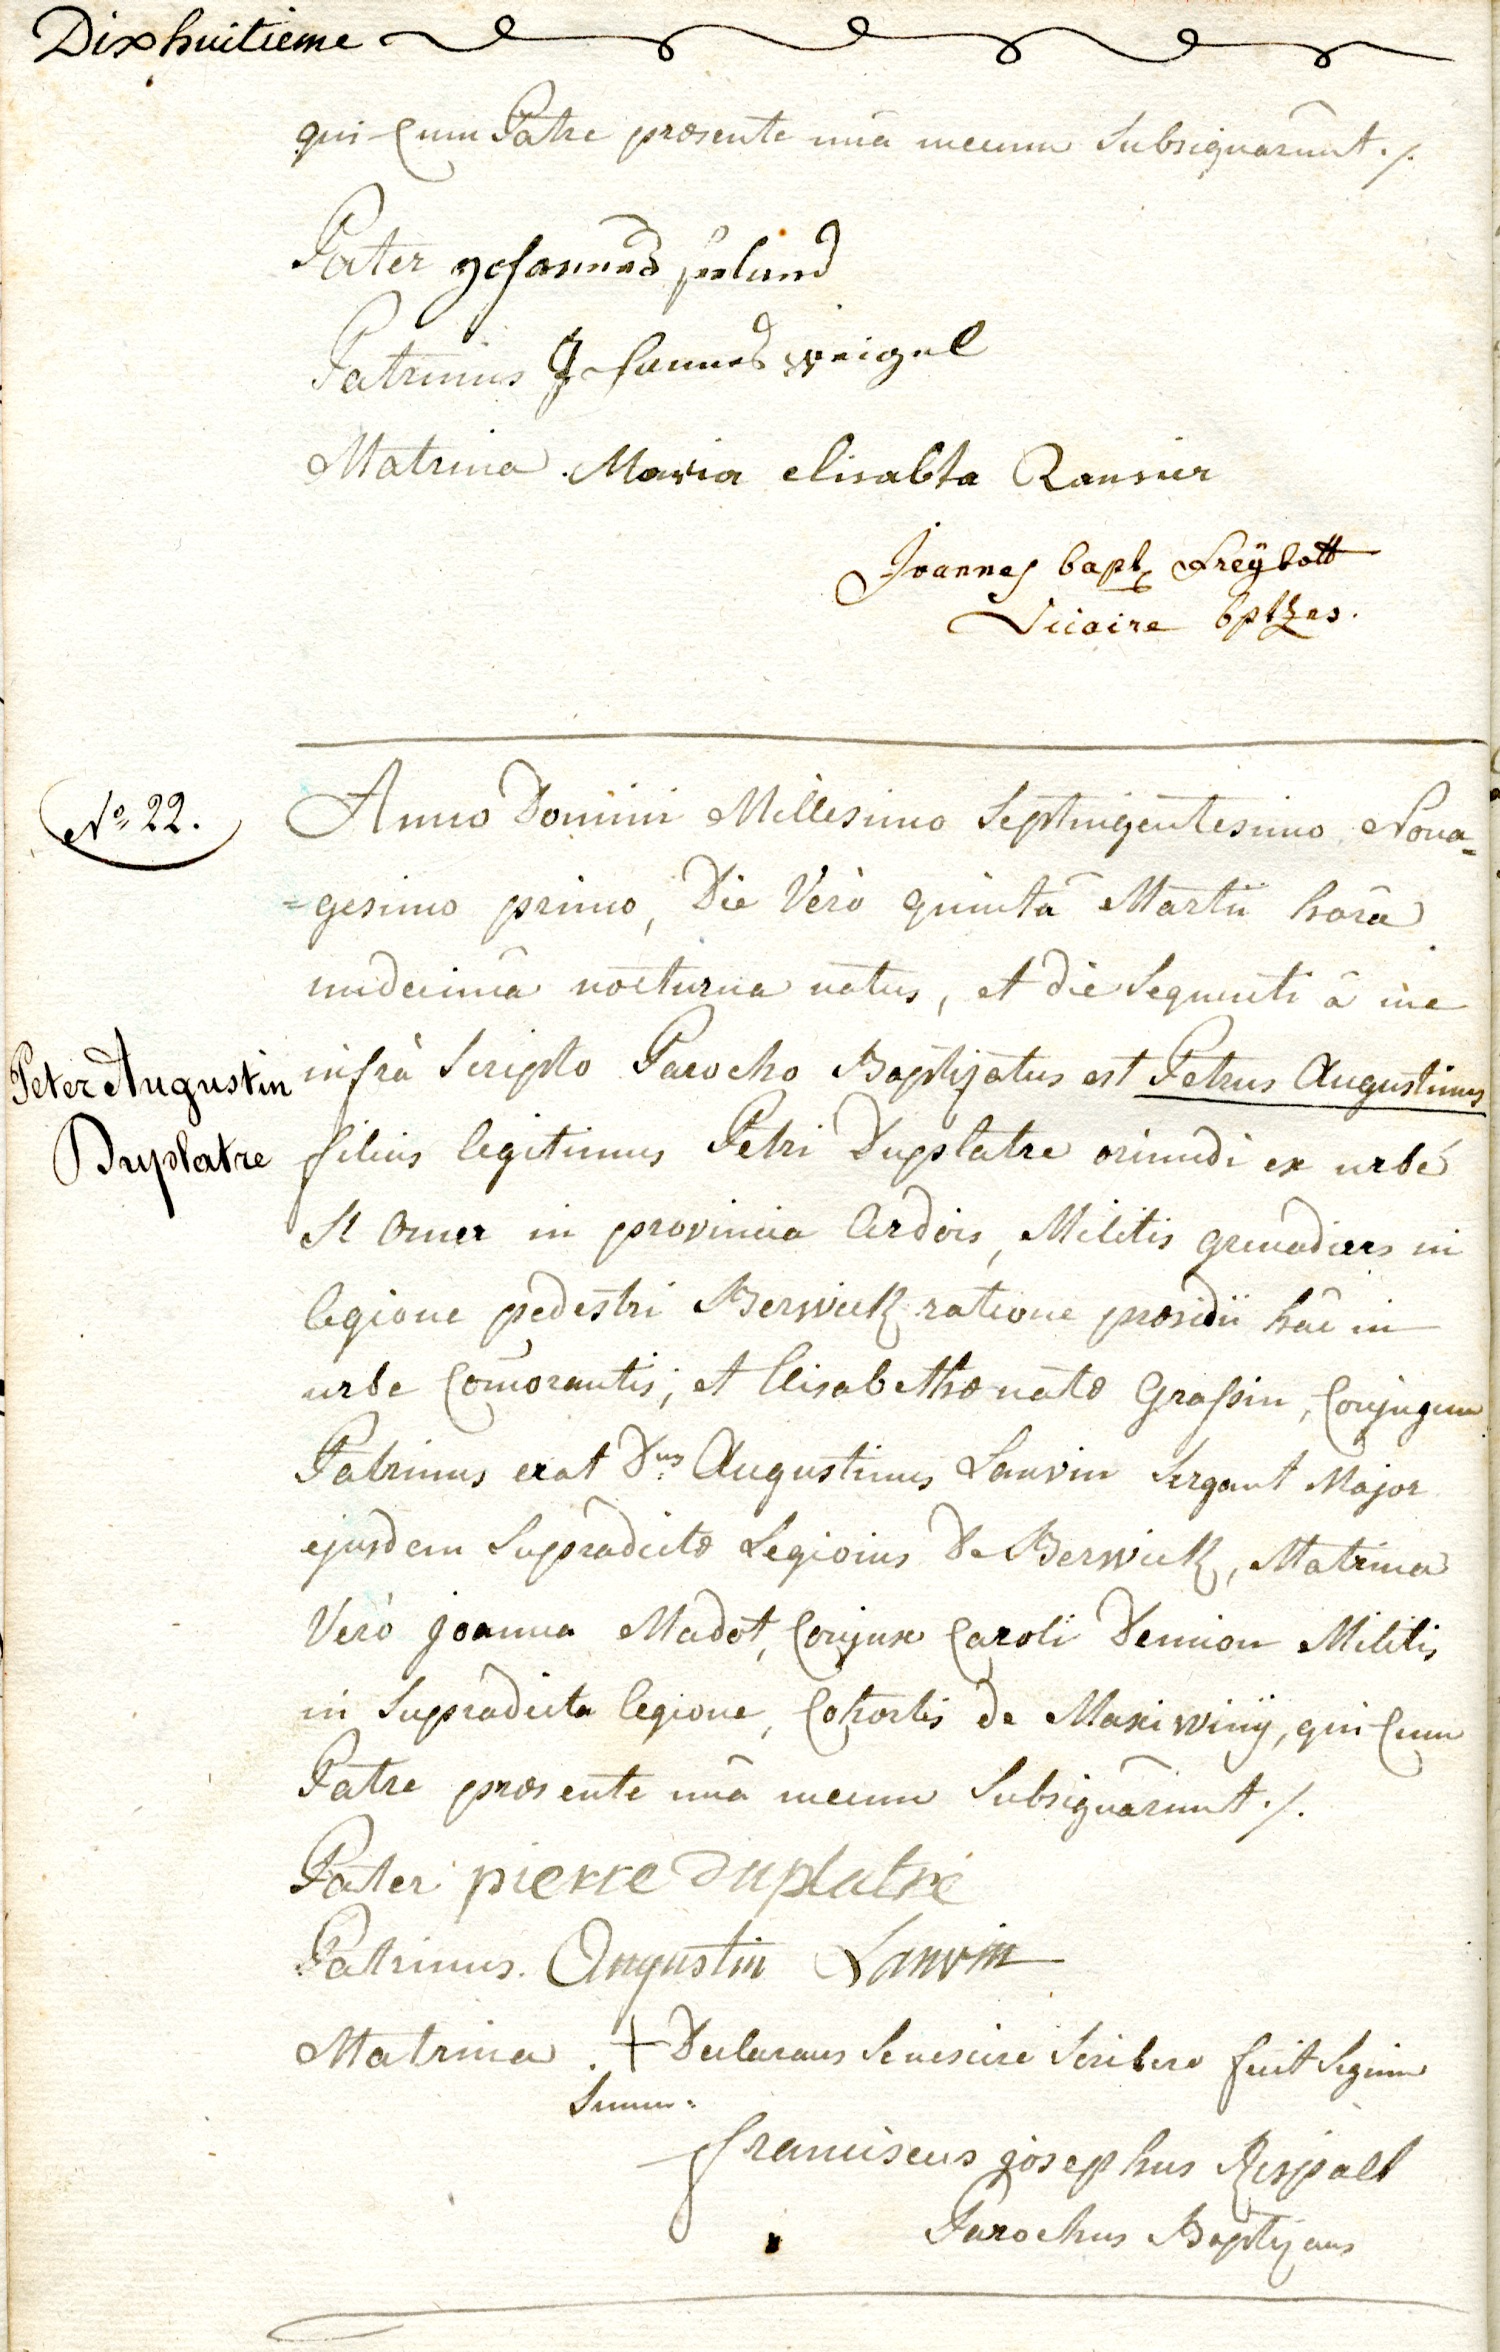 Dixhuitieme
qui Cum Patre præsente unâ mecum Subsignârunt ./.
Pater Johannes
Patrinus Johannes Weigel
Matrina Maria elisabta Ransier
Joannes bapt Freÿbott
Vicaire bptzes.
Nº 22.
Anno Domini Millesimo Septingentesimo Nona=
=gesimo primo, Die Verò quintâ Martii horâ
undecimâ nocturna natus, et die Sequenti â me
infrà Scripto Parocho Baptizatus est Petrus Augustinus
Peter Augustin
Duplatre
filius legitimus Petri Duplatre oriundi ex urbe
St Omer in provincia Ardois, Militis grenadiers in
legione pedestri Berwick ratione præsidii hâc in
urbe Com̄orantis; et Elisabethæ natæ Grassin, Conjugum
Patrinus erat Dnus Augustinus Lanvin Sergant Major
ejusdem Supradictæ Legionis De Berwick, Matrina
Verò Joanna Madot, Conjux Caroli Demion Militis
in Supradicta legione, Cohortis de Maxiwinÿ, qui Cum
Patre præsente unâ mecum Subsignârunt ./.
Pater pierre duplatre
Patrinus. Augustin Lanvin
Matrina . + Declarans Se nescire Scribere fecit Signum
Suum.
franciscus josephus Rispalt
Parochus Baptizans